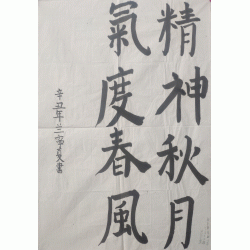 精神秋月
氣度春風
辛丑年